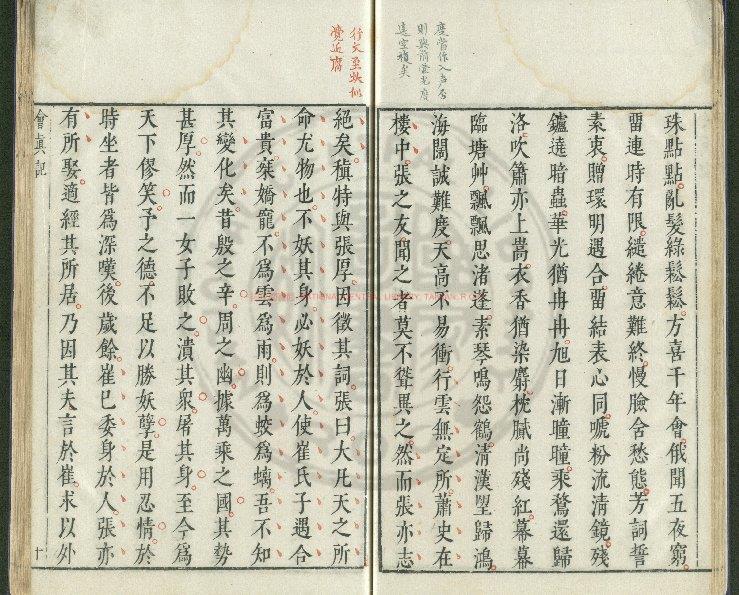 度當作入聲否
則與前螢光度
遠空複矣
珠點點亂髮綠鬆鬆方喜千年會俄聞五夜窮
畱連時有限繾綣意難終慢臉含愁態芳詞誓
素衷贈環明遇合畱結表心同啼粉流清鏡殘
鑪遶暗蟲華光猶冉冉旭日漸曈曈乘鶩還歸
洛吹簫亦上嵩衣香猶染麝枕膩尚殘紅幕幕
臨塘艸飄飄思渚蓬素琴鳴怨鶴清漢望歸鴻
海闊誠難度天高不易衝行雲無定所蕭史在
樓中張之友聞之者莫不聳異之然而張亦志
行文至此似
覺近腐
絕矣稹特與張厚因徵其詞張曰大凡天之所
命尤物也不妖其身必妖於人使崔氏子遇合
富貴寀嬌寵不為雲為雨則為蛟為螭吾不知
其變化矣昔殷之辛周之幽據萬乘之國其勢
甚厚然而一女子敗之潰其衆屠其身至今為
天下僇笑予之德不足以勝妖孽是用忍情於
時坐者皆為深嘆後歲餘崔已委身於人張亦
有所娶適經其所居乃因其夫言於崔求以外
會真記
十